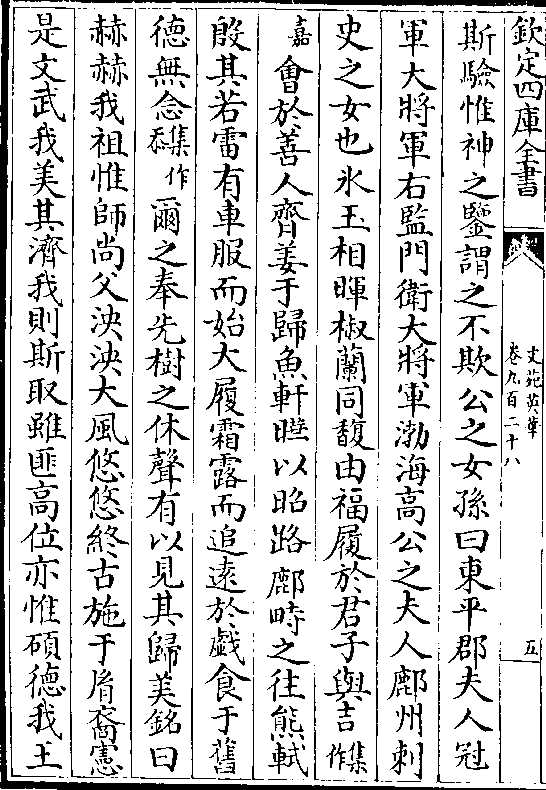 欽定四庫全書
文苑英華
卷九百二十八
五
斯驗惟神之鑒謂之不欺公之女孫曰東平郡夫人冠
軍大將軍右監門衛大將軍渤海高公之夫人鄜州刺
史之女也氷玉相暉椒蘭同馥由福履於君子與吉集作
嘉會於善人齊姜于歸魚軒曄以昭路鄜畤之往熊軾
殷其若雷有車服而始大履霜露而追遠於戲食于舊
德無念集作忝爾之奉先樹之休聲有以見其歸美銘曰
赫赫我祖惟師尚父泱泱大風悠悠終古施于胄裔憲
是文武我美其濟我則斯取雖匪高位亦惟碩德我王